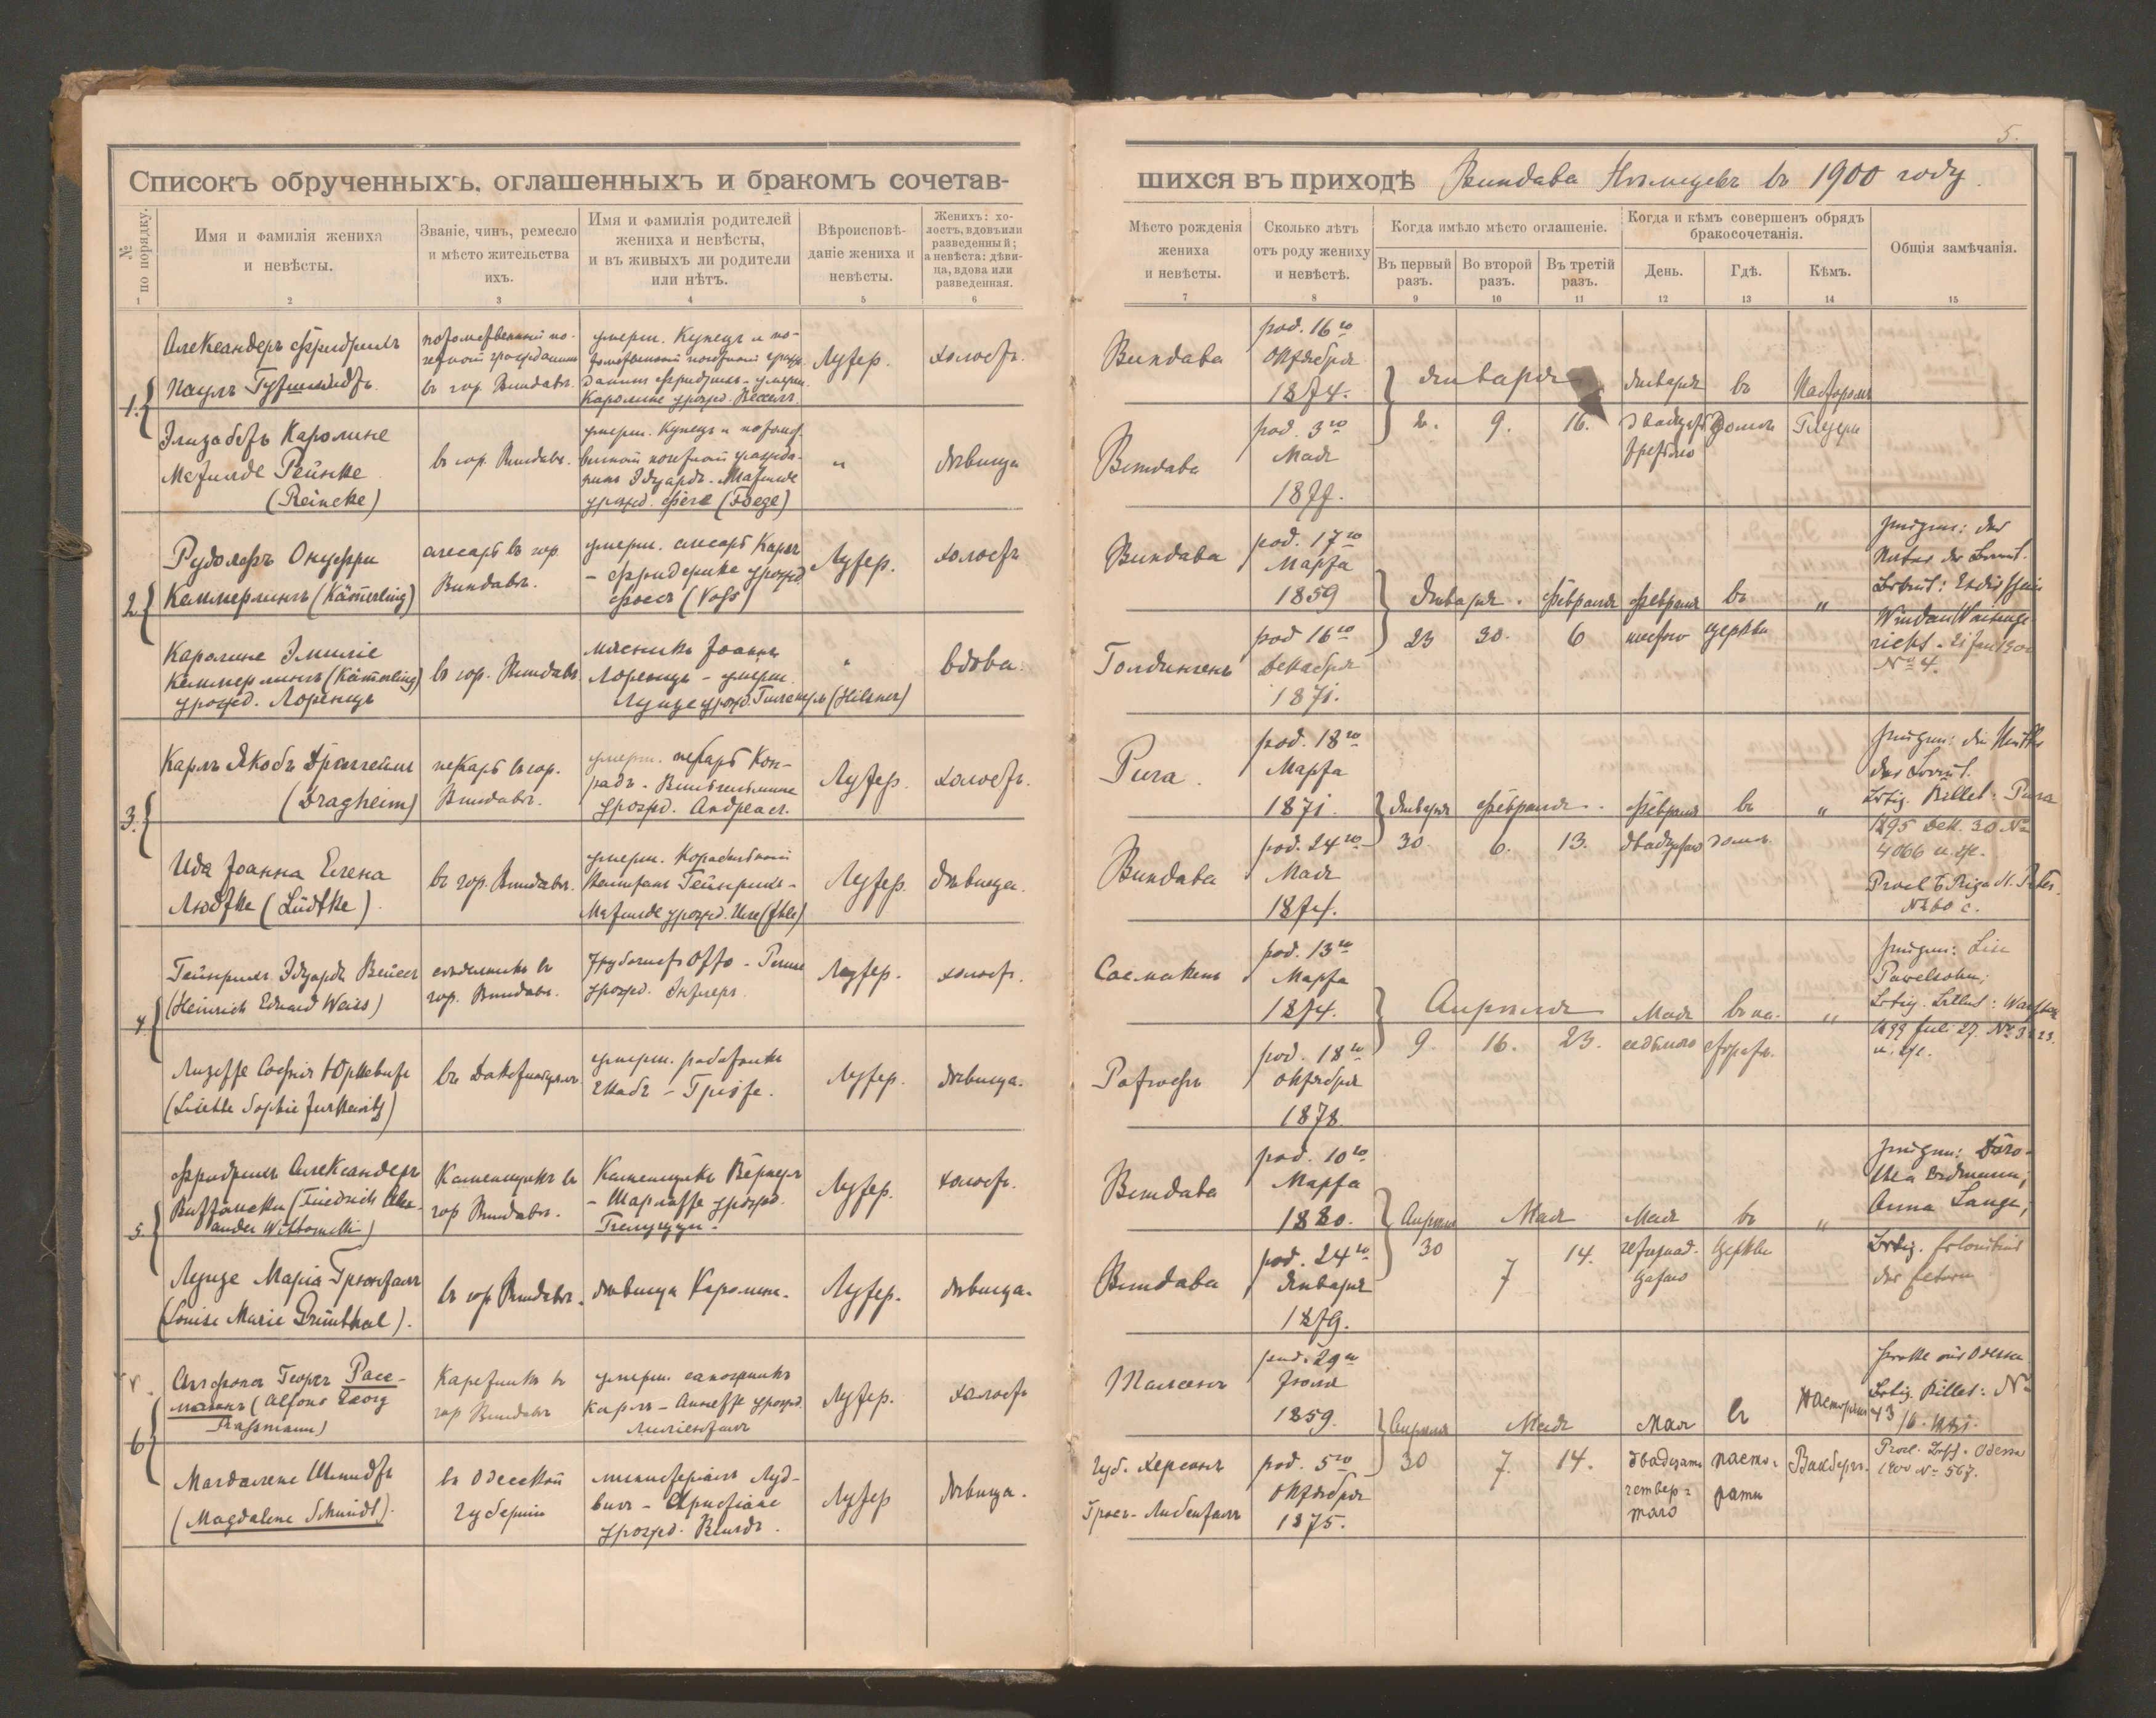 5.
Списокъ обрученныхъ, оглашенныхъ и бракомъ сочетав-
шихся въ приходѣ Виндава Нѣмцевъ въ 1900 году.
№ по порядку.
Имя и фамилія жениха
и невѣсты.
Званіе, чинъ, ремесло
и мѣсто жительства
ихъ.
Имя и фамилія родителей
жениха и невѣсты,
и въ живыхъ ли родители
или нѣтъ.
Вѣроисповѣ-
даніе жениха и
невѣсты.
Женихъ: хо-
лостъ, вдовъ или
разведенный;
а невѣста: дѣви-
ца, вдова или
разведенная.
Мѣсто рожденія
жениха
и невѣсты.
Сколько лѣтъ
отъ роду жениху
и невѣстѣ.
Когда имѣло мѣсто оглашеніе.
Въ первый
разъ.
Во второй
разъ.
Въ третій
разъ.
Когда и кѣмъ совершенъ обрядъ
бракосочетанія.
День.
Гдѣ.
Кѣмъ.
Общія замѣчанія.
1 2 3 4 5 6 7 8 9 10 11 12 13 14 15
1.
Александеръ Фридрихъ
Паулъ Гутшмидтъ
потомственный по-
четный гражданинъ
въ гор. Виндавѣ.
умерш. Купецъ и по-
томственный почетный граж.
данинъ Фридрихъ - умерш.
Каролине урожд. Вессель.
Лутер.
холостъ.
Виндава
род. 16го
Октября
1874.
Января
2. 9. 16.
Января
двадцать
третьяго
въ
домѣ
Пасторомъ
Глезеръ
Элизабетъ Каролине
Матилде Рейнке
(Reincke)
въ гор. Виндавѣ.
умерш. Купецъ и потомст.
венный почетный гражда-
нинъ Эдуардъ - Матилде
урожд. Феге (Foege)
"
дѣвица
Виндава
род. 3го
Мая
1877.
2.
Рудольфъ Онуфри
Кеммерлингъ (Kämerling)
слесарь въ гор.
Виндавѣ.
умерш. слесарь Карлъ
- Фридерике урожд.
Фосъ (Voß)
Лутер.
холостъ
Виндава
род. 17го
Марта
1859
Января. Февраля
23 30. 6
Февраля
шестого
въ
церкви
"
Windau Waisenge-
richt. 21 Jan 1900
№ 4.
Каролине Эмиліе
Кеммерлингъ (Kämerling)
урожд. Лоренцъ
въ гор. Виндавѣ
мясникъ Іоаннъ
Лоренцъ - умерш.
Луизе урожд. Гильзнеръ (Hilsner)
"
вдова.
Голдингенъ
род 16го
Декабря
1871.
3.
Карлъ Якобъ Драггеймъ
(Dragheim)
пекарь въ гор.
Виндавѣ.
умерш. пекарь Кон-
радъ - Вильгельмине
урожд. Андреасъ.
Лутер.
холостъ.
Рига.
род. 18го
Марта
1871
Января Февраля.
30. 6. 13.
Февраля
двадцатаго
въ
домѣ.
"
Billet: Рига
1895 Дек. 30 №
4066
Procl. Riga St. Petri
№ 60 c.
Ида Іоанна Елена
Людтке (Lüdtke)
въ гор. Виндавѣ.
умерш. Корабельный
Капитанъ Гейнрихъ -
Матилде урожд. Иле (Ihle)
Лутер.
дѣвица.
Виндава
род. 24го
Мая
1874.
4.
Гейнрихъ Эдуардъ Вейсъ
(Heinrich Eduard Weiss)
сѣдельникъ въ
гор. Виндавѣ.
трубочистъ Отто -
урожд.
Лутер.
холостъ.
Сасмакенъ
род. 13го
Марта
1874.
Апрѣля
9. 16. 23.
Мая
седьмого
въ па-
сторатѣ.
"
Pawelsohn;
1899 Juli 27. № 3223.
Лизетте Софія Юркевицъ
(Lisette Sophie Jurkewitz)
въ
умерш. работникъ
Екабъ - Гріете.
Лутер.
дѣвица.
род. 18го
Октября
1878.
5.
Фридрихъ Александеръ
Виттомски (Friedrich Alex-
ander Wittomski)
Каменщикъ въ
гор Виндавѣ.
Каменщикъ
- Шарлотте урожд.
Лутер.
холостъ.
Виндава
род. 10го
Марта
1880.
Апрѣля Мая
30 7 14.
Мая
четырнад-
цатаго
въ
церкви
"
Doro-
thea Erdmann;
Anna Lange;
Луизе Маріа Грюнталъ
(Louise Marie Grünthal).
въ гор Виндавѣ.
дѣвица Каролина.
Лутер.
дѣвица.
Виндава
род. 24го
Января
1879.
6
Альфонсъ Георгъ Расс-
манъ (Alfons Georg
Rassmann)
Каретникъ въ
гор Виндавѣ
умерш. сапожникъ
Карлъ - Аннетте урожд.
Лиліенталъ
Лутер.
холостъ
Талсенъ
род. 29го
Іюля
1859.
Апрѣля Мая
30 7. 14.
Мая
двадцать
четвер-
таго
въ
пасто-
ратѣ
Пасторомъ
Вакберг.
Odessa
Billet: №
43
Odessa
1900 № 567.
Магдалене Шмидтъ
(Magdalene Schmidt).
въ Одесской
губерніи
министеріалъ Люд-
вигъ - Христіане
урожд. Вильдъ.
Лутер
дѣвица.
Губ. Херсонъ
Гросъ-Либенталъ
род. 5го
Октября
1875.